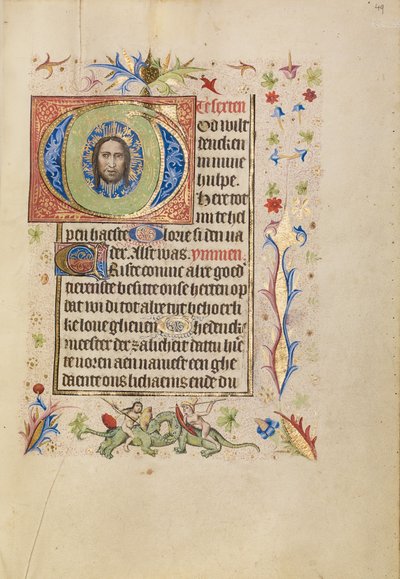 49
Te sexten
God wilt
dencken
in mine
hulpe.
Here tot
mi te hel
pen haeste Glorie si den va
der. Alst was. ymmen.
Criste coninc alre goed
tierenste besitte onse herten op
dat wi du tot alre tijt behoerli
ke loue gheuen Ghedencke
meester der zalicheit dattu hie
te uoren aen naemste een ghe
daente ons lichaems ende du